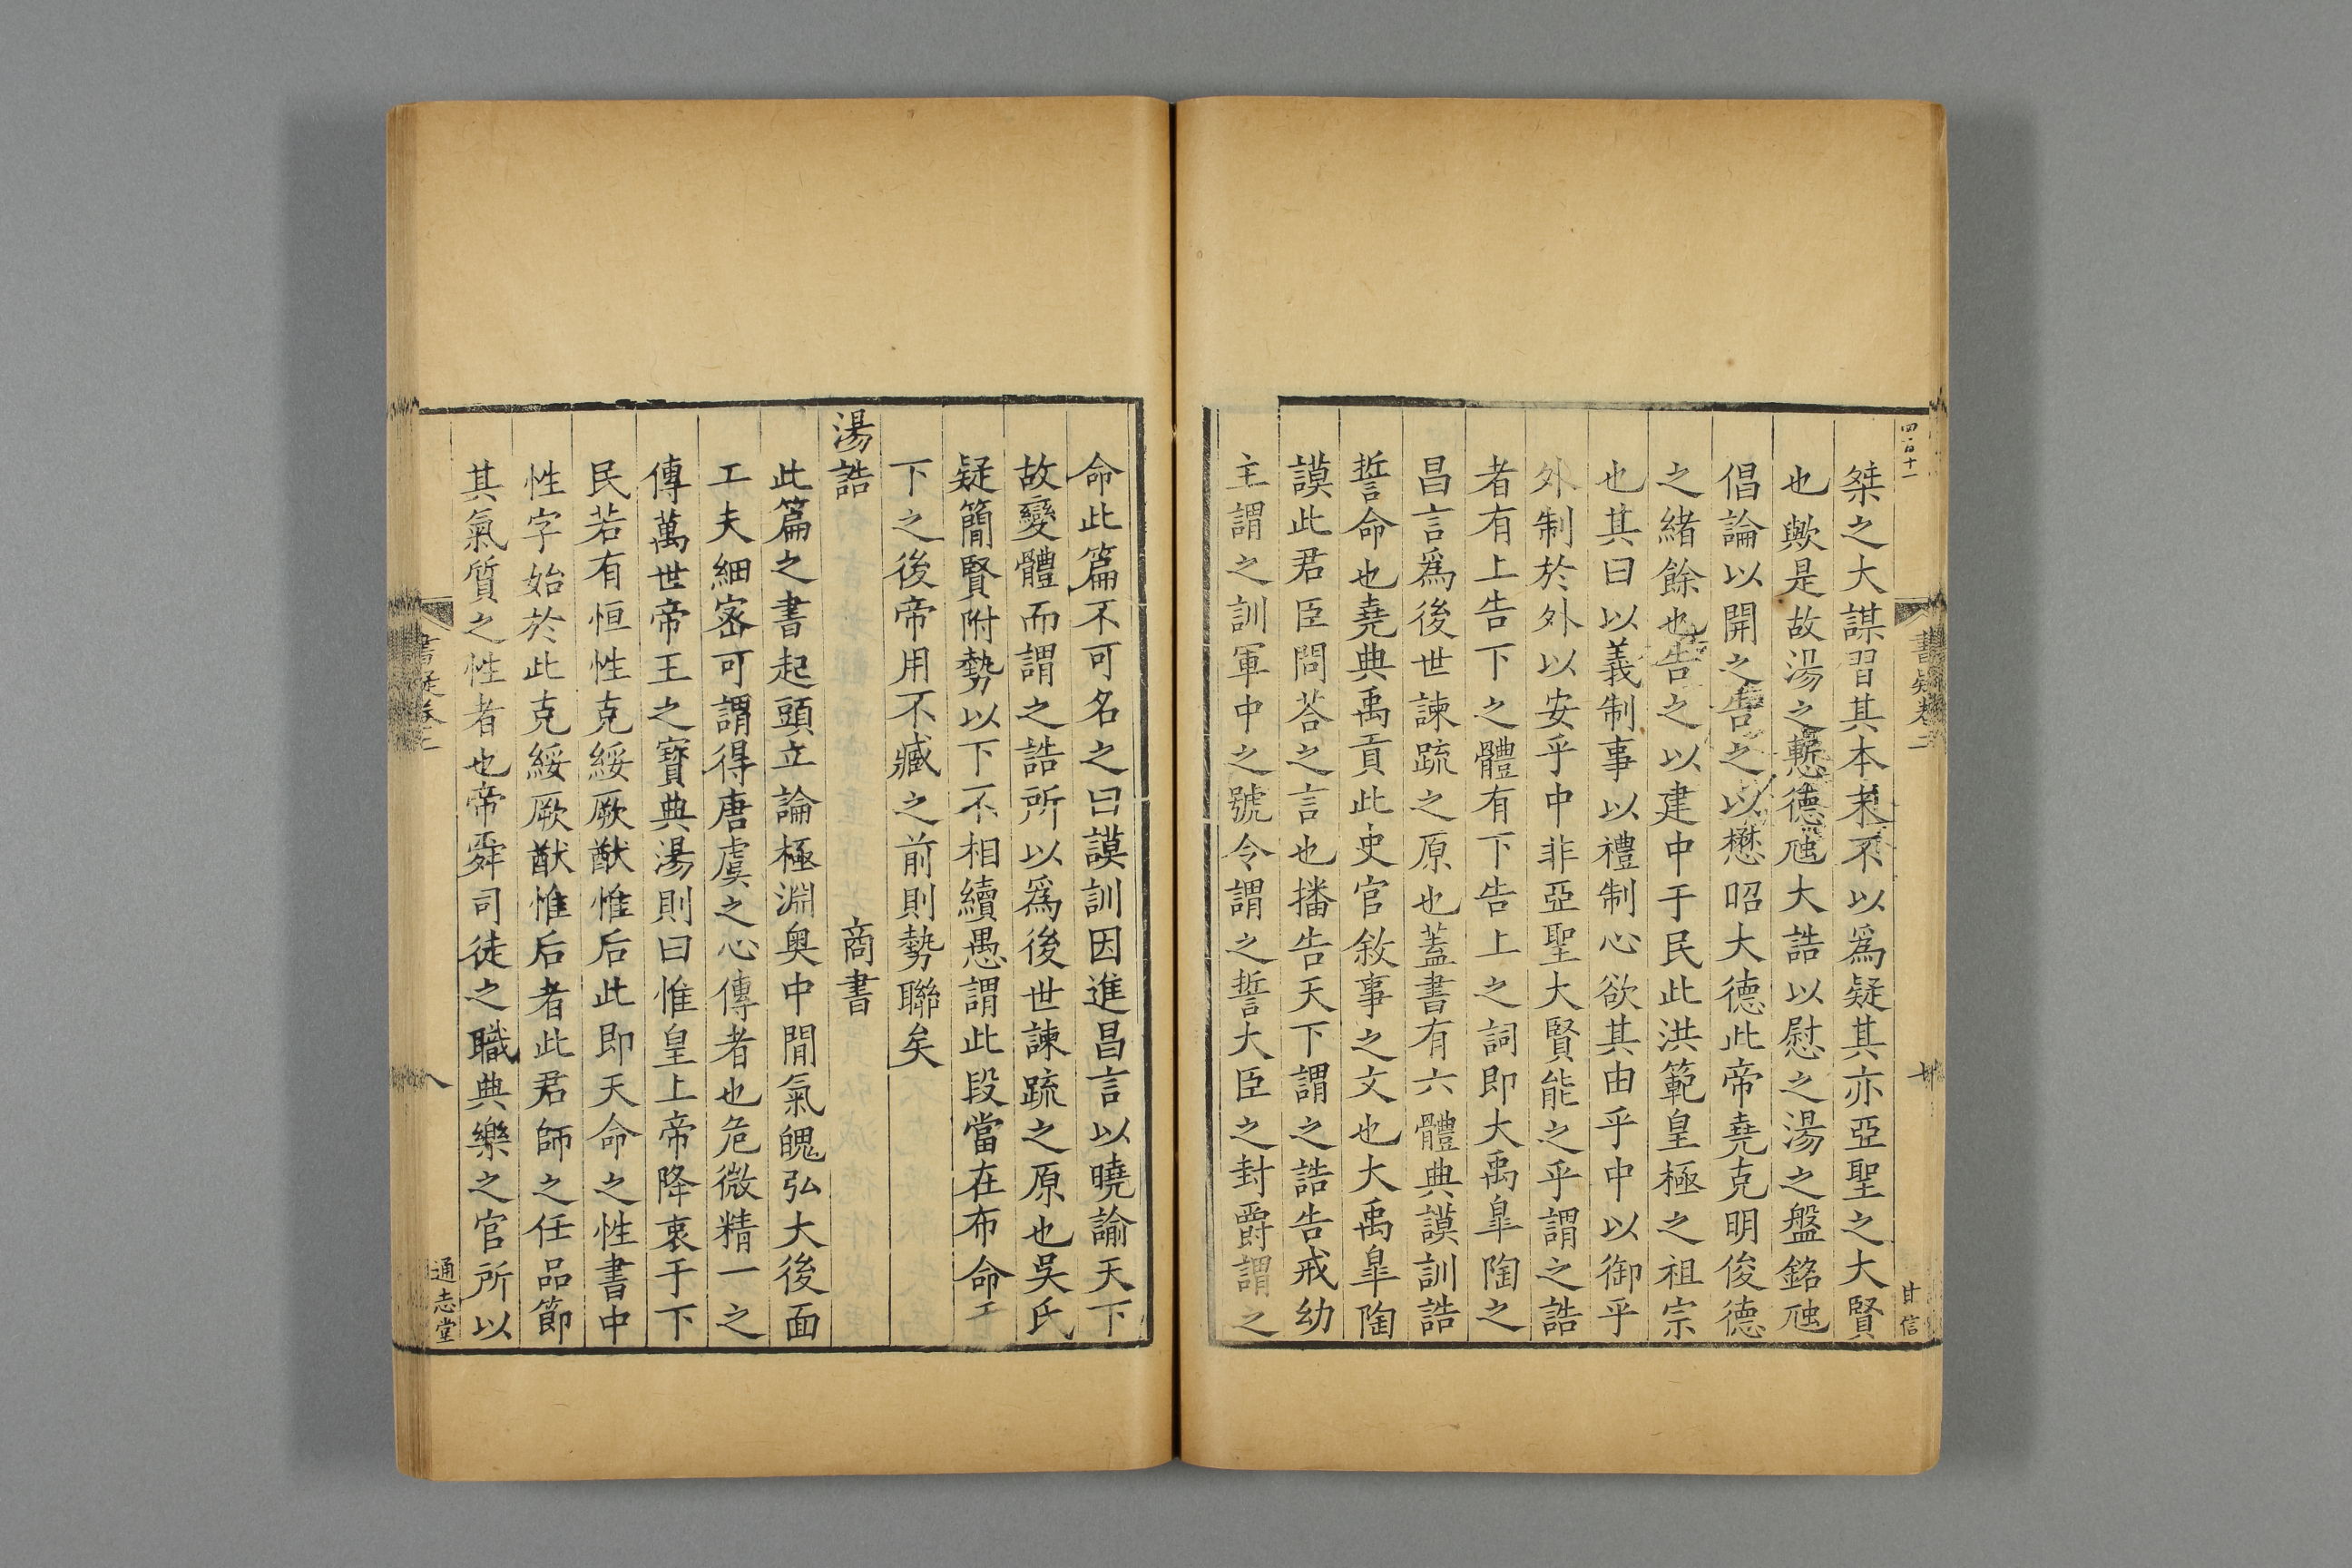 四百十一
書疑卷二
甘信
桀之大謀習其本末不以爲疑其亦亞聖之大賢
也歟是故湯之慙德虺大誥以慰之湯之盤銘虺
倡論以開之告之以懋昭大德此帝堯克明俊德
之緒餘也告之以建中于民此洪範皇極之祖宗
也其曰以義制事以禮制心欲其由乎中以御乎
外制於外以安乎中非亞聖大賢能之乎謂之誥
者有上告下之體有下告上之詞即大禹皐陶之
昌言爲後世諫疏之原也蓋書有六體典謨訓誥
誓命也堯典禹貢此史官敘事之文也大禹皐陶
謨此君臣問荅之言也播告天下謂之誥告戒幼
主謂之訓軍中之號令謂之誓大臣之封爵謂之
命此篇不可名之曰謨訓因進昌言以曉諭天下
故變體而謂之誥所以爲後世諫疏之原也吳氏
疑簡賢附勢以下不相續愚謂此段當在布命
下之後帝用不臧之前則勢聯矣
湯誥 商書
此篇之書起頭立論極淵奥中間氣魄弘大後面
工夫細宻可謂得唐虞之心傳者也危微精一之
傳萬世帝王之寳典湯則曰惟皇上帝降衷于下
民若有恒性克綏厥猷惟后此即天命之性書中
性字始於此克綏厥猷惟后者此君師之任品節
其氣質之性者也帝舜司徒之職典樂之官所以
書疑卷二
八
通志堂